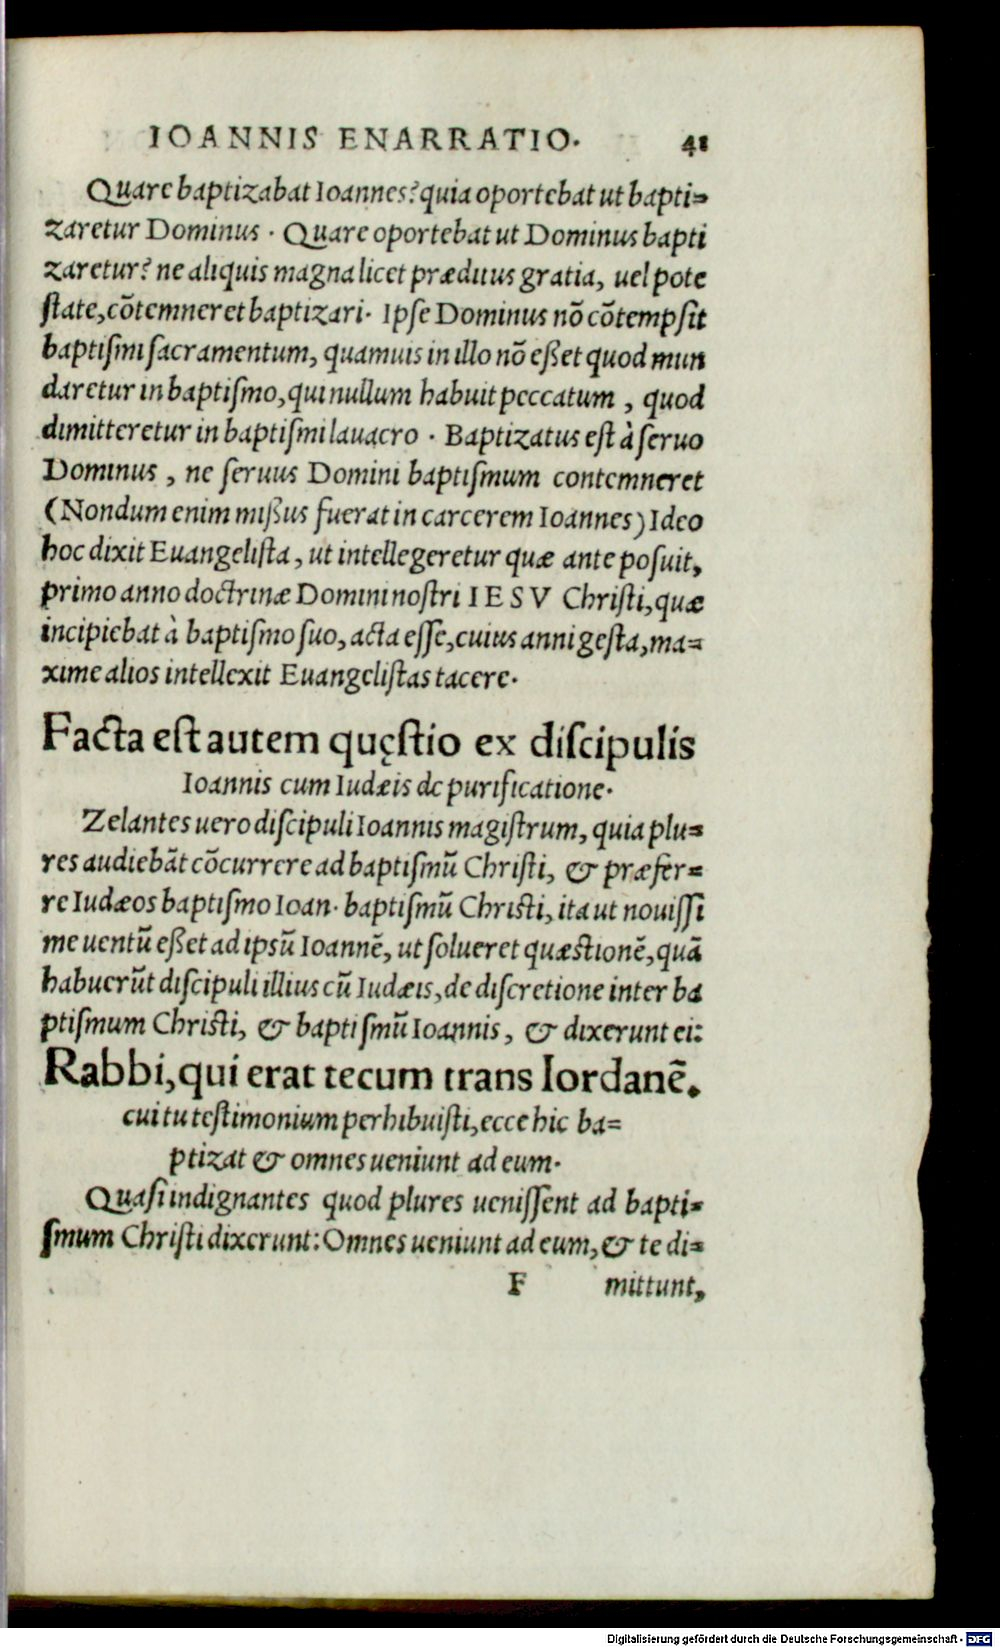 IOANNIS ENARRATIO. 41
Quare baptizabat Ioannes? quia oportebat ut bapti=
zaretur Dominus. Quare oportebat ut Dominus bapti
zaretur? ne aliquis magna licet præditus gratia, uel pote
ſtate, cõtemneret baptizari. Ipſe Dominus nõ cõtempſit
baptiſmi ſacramentum, quamuis in illo nõ eßet quod mun
daretur in baptiſmo, qui nullum habuit peccatum, quod
dimitteretur in baptiſmi lauacro. Baptizatus eſt à ſeruo
Dominus, ne ſeruus Domini baptiſmum contemneret
(Nondum enim mißus fuerat in carcerem Ioannes) Ideo
hoc dixit Euangeliſta, ut intellegeretur quæ ante poſuit,
primo anno doctrinæ Domini noſtri IESV Chriſti, quæ
incipiebat à baptiſmo ſuo, acta eſſe, cuius anni geſta, ma=
xime alios intellexit Euangeliſtas tacere.
Facta eſt autem quęſtio ex diſcipulis
Ioannis cum Iudæis de purificatione.
Zelantes uero diſcipuli Ioannis magiſtrum, quia plu=
res audiebãt cõcurrere ad baptiſmũ Chriſti, & præfer=
re Iudæos baptiſmo Ioan. baptiſmũ Chriſti, ita ut nouiſſi
me uentũ eßet ad ipſũ Ioannẽ, ut ſolueret quæſtionẽ, quã
habuerũt diſcipuli illius cũ Iudæis, de diſcretione inter ba
ptiſmum Chriſti, & baptiſmũ Ioannis, & dixerunt ei:
Rabbi, qui erat tecum trans Iordanẽ.
cui tu teſtimonium perhibuiſti, ecce hic ba=
ptizat & omnes ueniunt ad eum.
Quaſi indignantes quod plures ueniſſent ad bapti=
ſmum Chriſti dixerunt: Omnes ueniunt ad eum, & te di=
F mittunt,
Digitalisierung gefördert durch die Deutsche Forschungsgemeinschaft - DFG